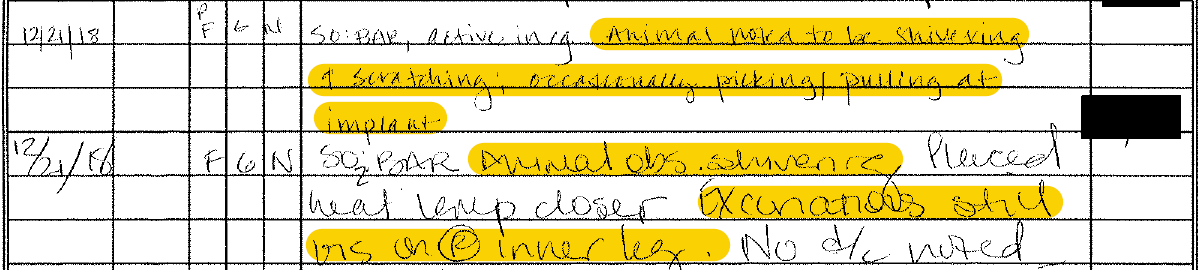 12/21/18 P F G N SO: BAR, active in cg Animal noted to be shivering
& scratching; occasionally picking/pulling at
implant
12/21/18 F G N SO: BAR Animal obs. shivering Placed
heat lamp closer Excoriations still
vis on Ⓡ inner leg. No d/c noted